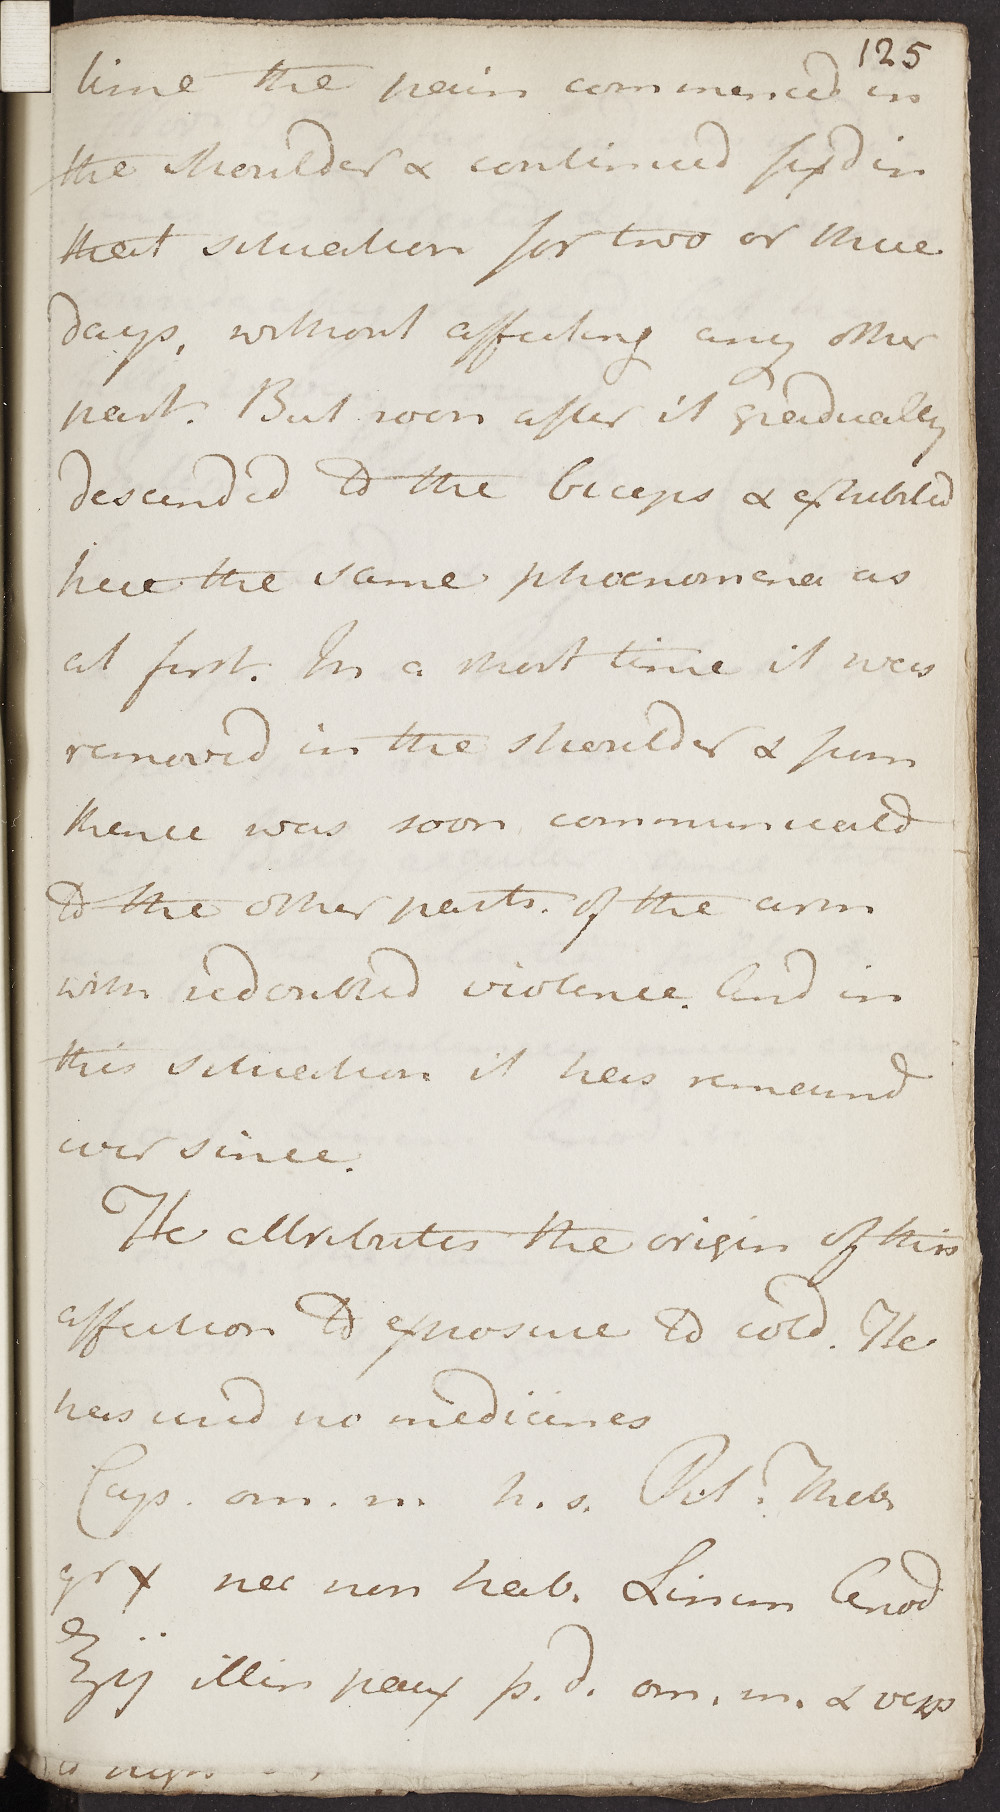 125
time the pain commenced in
the shoulder & continued fix'd in
that situation for two or three
days, without affecting any other
part. But soon after it gradually
descended to the biceps & exhibited
here the same phœnomena as
at first. In a short time it was
removed in the shoulder & from
thence was soon communicated
to the other parts of the arm
with redoubled violence. And in
this situation it has remained
ever since.
He attributes the origin of this
affection to exposure to cold. He
has used no medicines
Cap. om. n. h. s. Pil. Theb.
gr x nec non hab. Linim Anod
℥ij illin part p. d. om. m. & vesp